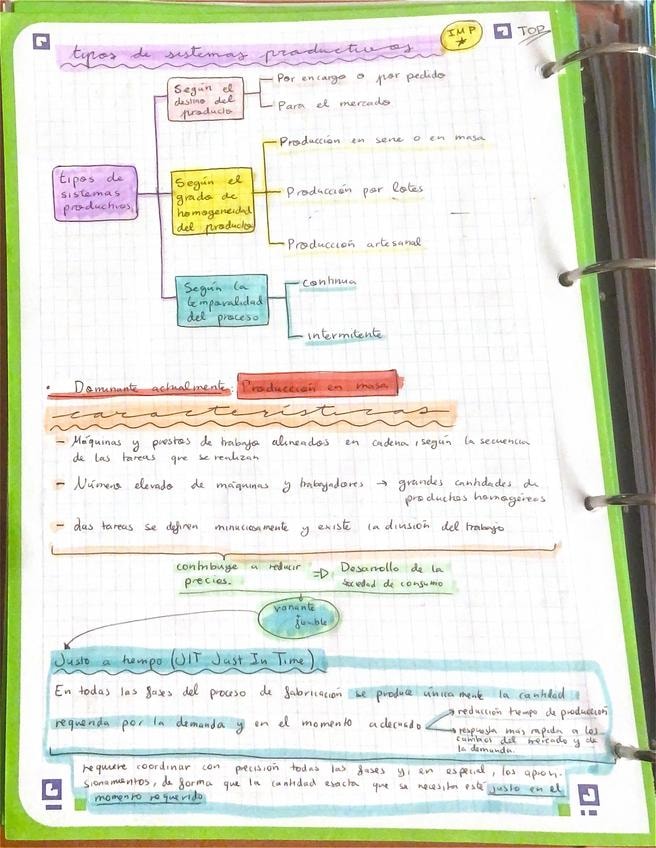 tipos de sistemas productivos
IMP
TOP
Según el
destino del
producto
Por encargo o por pedido
Para el mercado
tipos de
sistemas
productivos
Según el
grado de
homogeneidad
del producto
Producción en serie o en masa
Producción por lotes
Producción artesanal
Según la
temporalidad
del proceso
Continua
Intermitente
· Dominante actualmente: Producción en masa
características
- Máquinas y puestos de trabajo alineados en cadena, según la secuencia
de las tareas que se realizan
- Número elevado de máquinas y trabajadores → grandes cantidades de
productos homogéneos
- Las tareas se definen minuciosamente y existe la división del trabajo
contribuye a reducir
precios.
⇒ Desarrollo de la
sociedad de consumo
variante
flexible
Justo a tiempo (JIT Just In Time)
En todas las fases del proceso de fabricación se produce únicamente la cantidad
requerida por la demanda y en el momento adecuado
reducción tiempo de producción
respuesta más rápida a los
cambios del mercado y de
la demanda.
requiere coordinar con precisión todas las fases y, en especial, los aprovi-
sionamientos, de forma que la cantidad exacta que se necesita esté justo en el
momento requerido